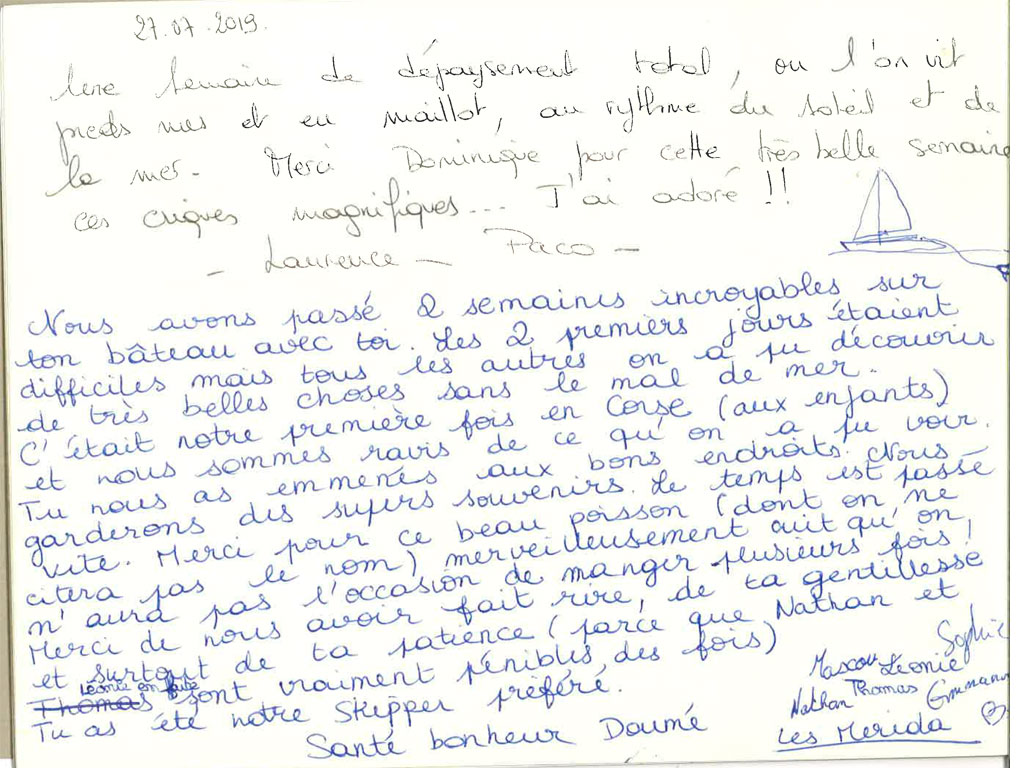 27.07.2019.
1ere semaine de dépaysement total, ou l'on vit
pieds nus et en maillot, au rythme du soleil et de
la mer. Merci Dominique pour cette très belle semaine
ces criques magnifiques... J'ai adoré !!
- Laurence - Paco -
Nous avons passé 2 semaines incroyables sur
ton bâteau avec toi. Les 2 premiers jours étaient
difficiles mais tous les autres on a pu découvrir
de très belles choses sans le mal de mer.
C'était notre première fois en Corse (aux enfants)
et nous sommes ravis de ce qu'on a pu voir.
Tu nous as emmenés aux bons endroits. Nous
garderons des supers souvenirs. Le temps est passé
vite. Merci pour ce beau poisson (dont on ne
citera pas le nom) merveilleusement cuit qu'on
n'aura pas l'occasion de manger plusieurs fois!
Merci de nous avoir fait rire, de ta gentillesse
et surtout de ta patience (parce que Nathan et
Thomas Léonie en fait sont vraiment pénibles, des fois)
Tu as été notre Skipper préféré.
Santé bonheur Doumé
Sophie
Léonie
Nathan Thomas
Les Merida